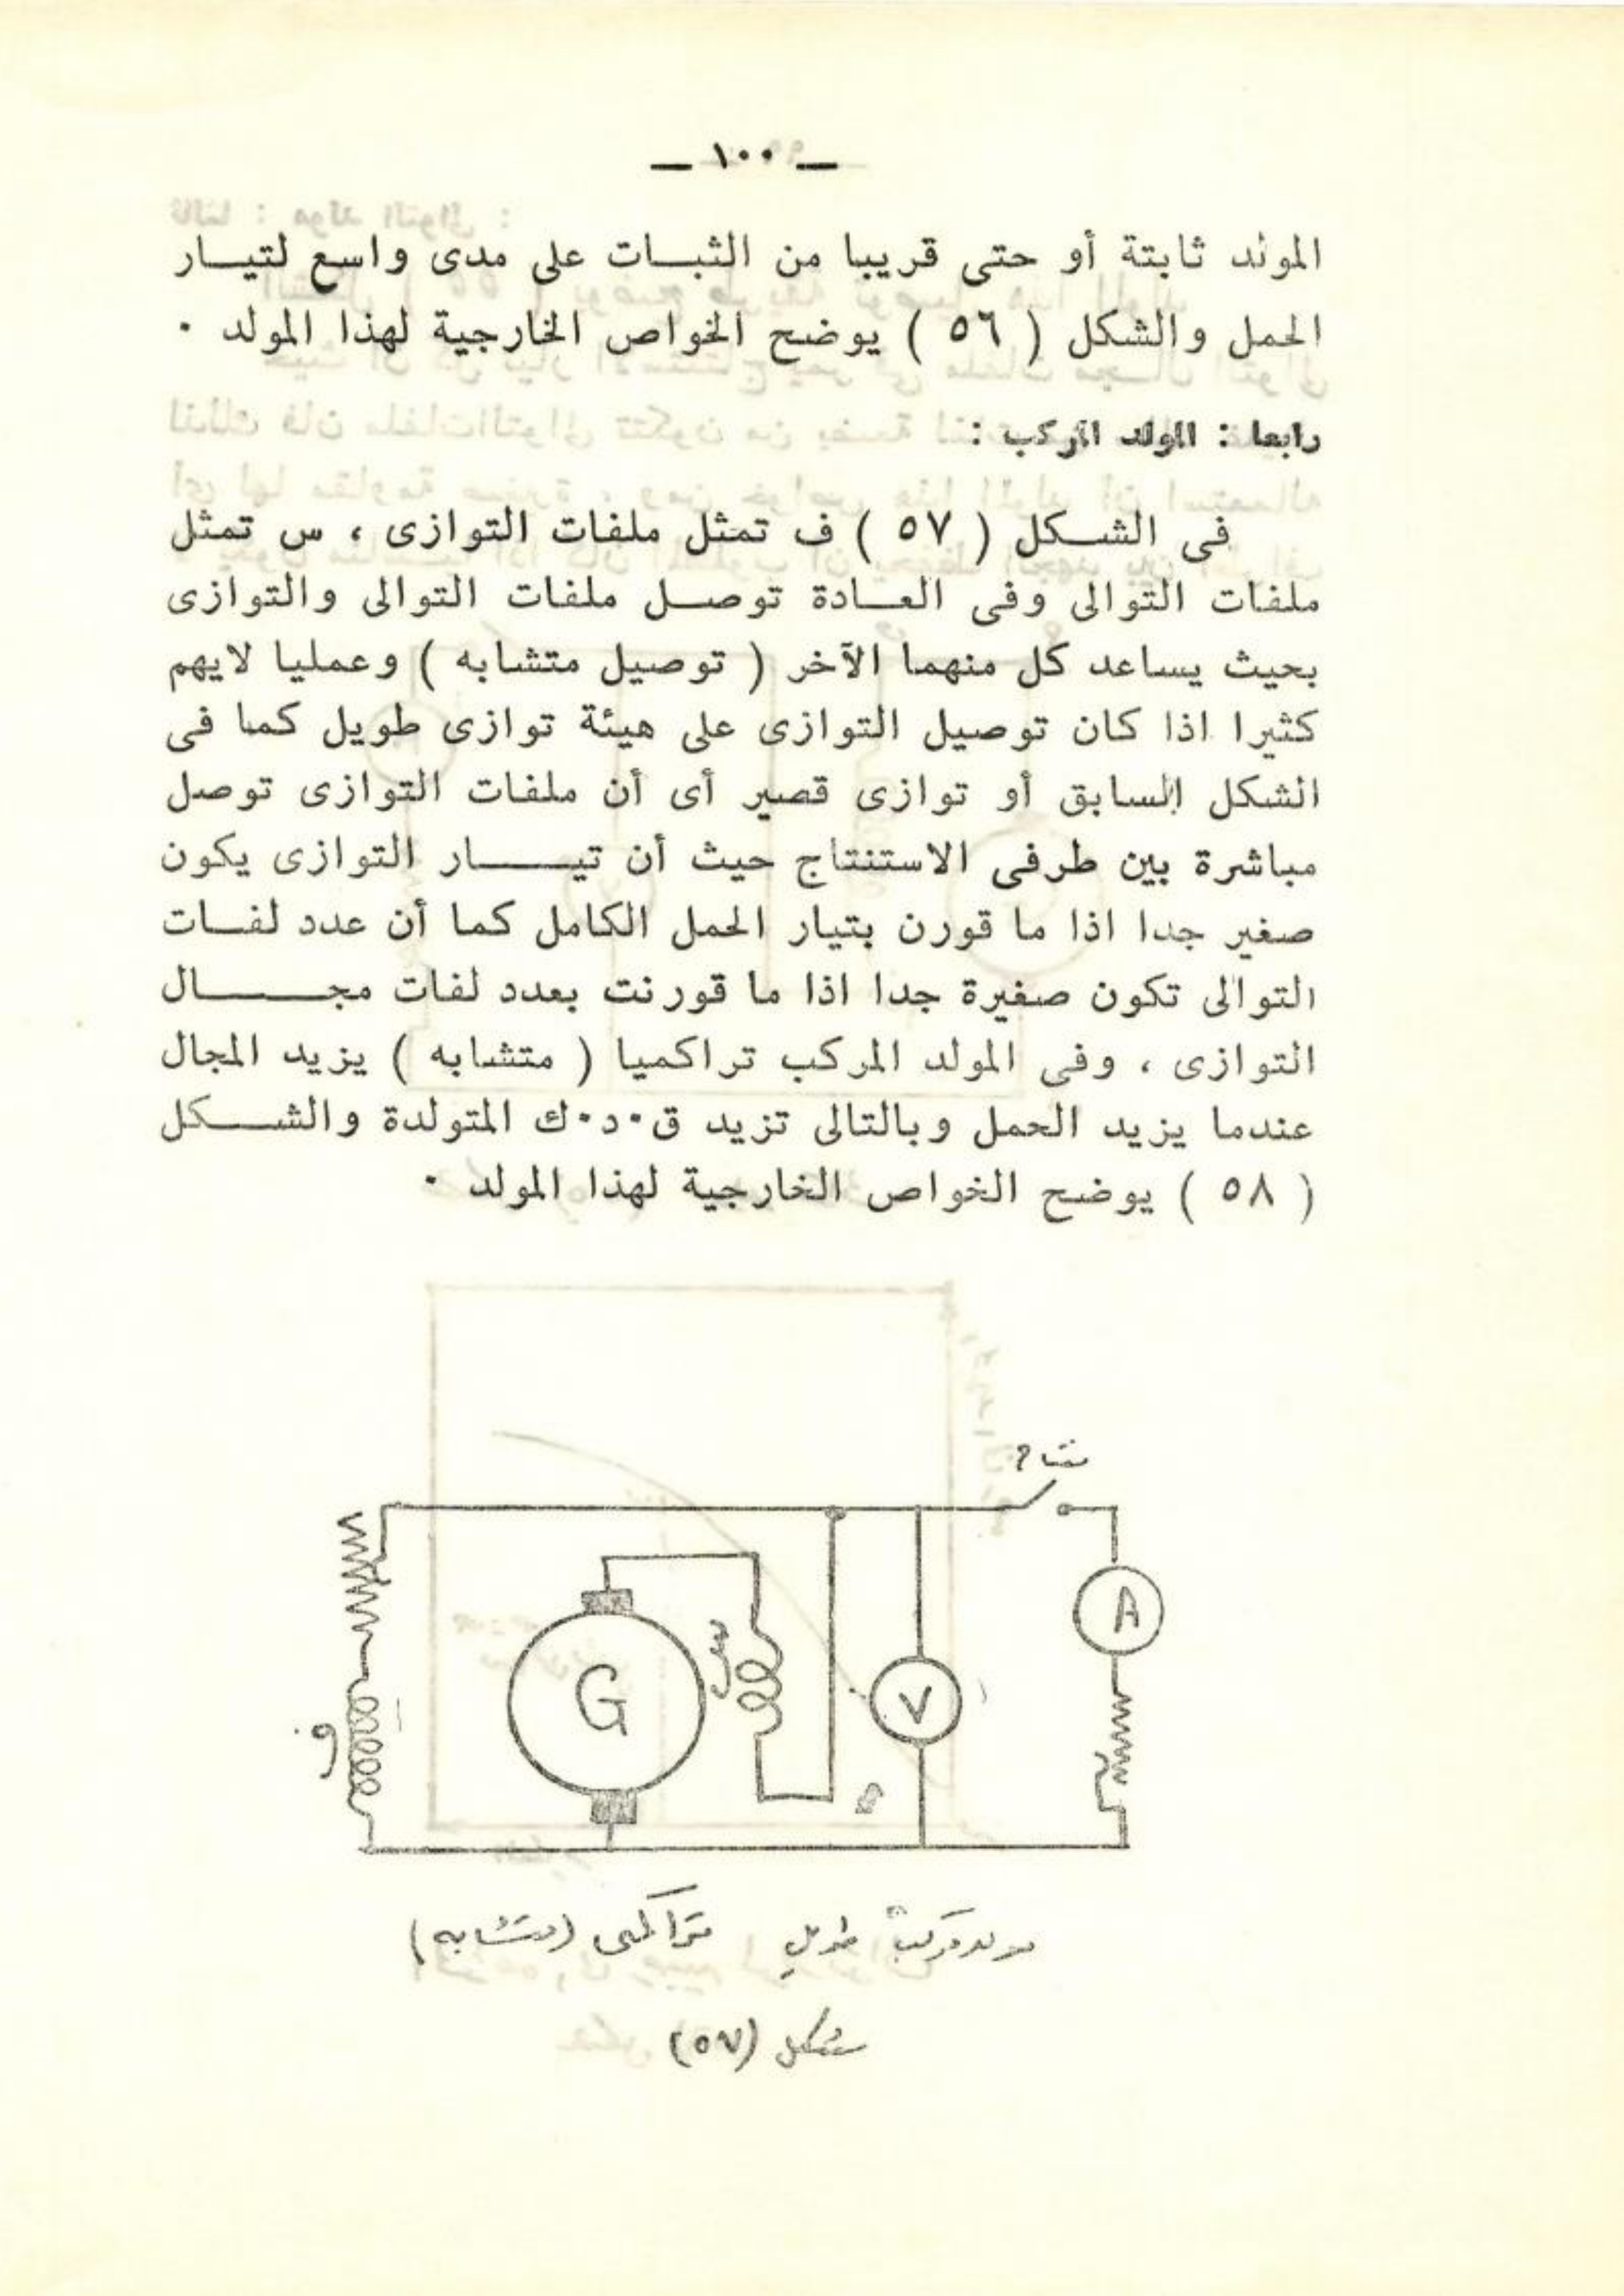 — ١٠٠ —
المولد ثابتة أو حتى قريبا من الثبات على مدى واسع لتيار
الحمل والشكل ( ٥٦ ) يوضح الخواص الخارجية لهذا المولد ٠
رابعا : المولد المركب :
فى الشكل ( ٥٧ ) ف تمثل ملفات التوازى ، س تمثل
ملفات التوالى وفى العادة توصل ملفات التوالى والتوازى
بحيث يساعد كل منهما الآخر ( توصيل متشابه ) وعمليا لايهم
كثيرا اذا كان توصيل التوازى على هيئة توازى طويل كما فى
الشكل السابق أو توازى قصير أى أن ملفات التوازى توصل
مباشرة بين طرفى الاستنتاج حيث أن تيار التوازى يكون
صغير جدا اذا ما قورن بتيار الحمل الكامل كما أن عدد لفات
التوالى تكون صغيرة جدا اذا ما قورنت بعدد لفات مجال
التوازى ، وفى المولد المركب تراكميا ( متشابه ) يزيد المجال
عندما يزيد الحمل وبالتالى تزيد ق٠د٠ك المتولدة والشكل
( ٥٨ ) يوضح الخواص الخارجية لهذا المولد ٠
A
س
G
V
ف
مولد مركب طويل تراكمى (متشابه)
شكل (٥٧)